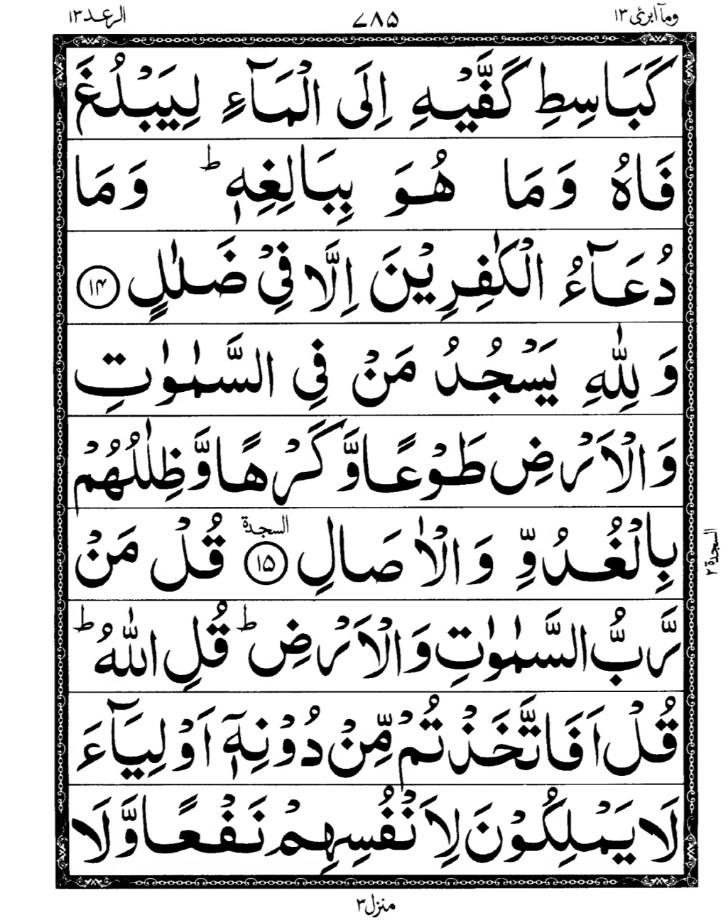 وما ابرئ ١٣ ٧٨٥ الرعد ١٣
كَبَاسِطِ كَفَّيْهِ اِلَى الْمَآءِ لِيَبْلُغَ
فَاهُ وَمَا هُوَ بِبَالِغِهٖ ؕ وَمَا
دُعَآءُ الْكٰفِرِيْنَ اِلَّا فِيْ ضَلٰلٍ ١٤
وَلِلّٰهِ يَسْجُدُ مَنْ فِي السَّمٰوٰتِ
وَالْاَرْضِ طَوْعًا وَّكَرْهًا وَّظِلٰلُهُمْ
بِالْغُدُوِّ وَالْاٰصَالِ ١٥ السجدة قُلْ مَنْ
السجدة ٢
رَّبُّ السَّمٰوٰتِ وَالْاَرْضِ ؕ قُلِ اللّٰهُ ؕ
قُلْ اَفَاتَّخَذْتُمْ مِّنْ دُوْنِهٖۤ اَوْلِيَآءَ
لَا يَمْلِكُوْنَ لِاَنْفُسِهِمْ نَفْعًا وَّلَا
منزل ٣